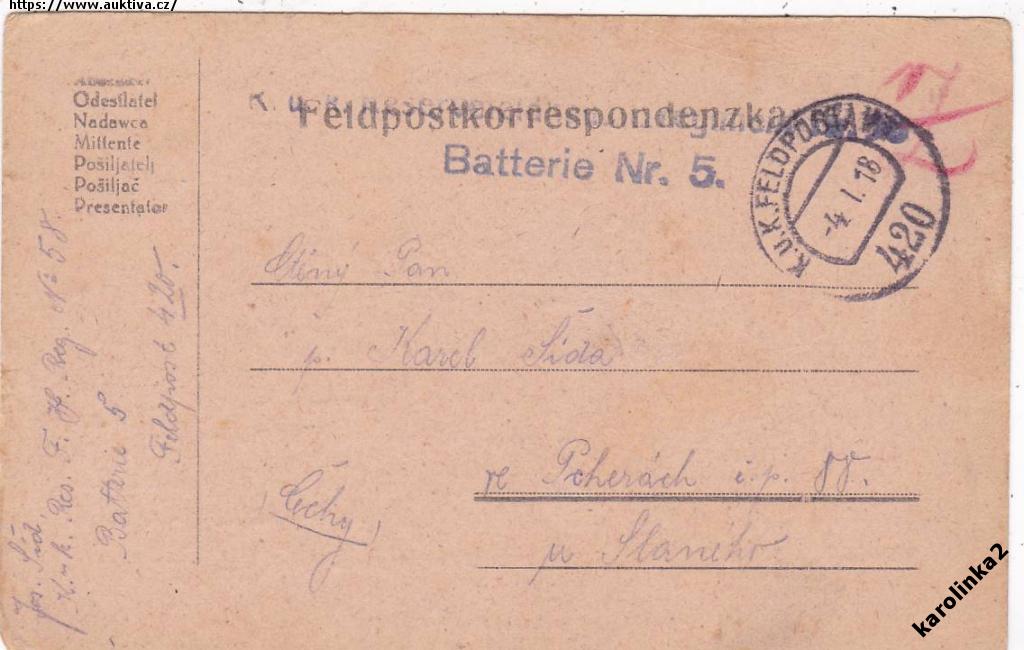 https://www.auktiva.cz/
Odesílatel
Nadawca
Mittente
Pošiljatelj
Pošiljač
Presentator
Feldpostkorrespondenzkarte
Batterie Nr. 5.
K.U.K. FELDPOSTAMT
-4. I. 18
420
Ctěný Pan
p. Karel Šída
ve Pcherách č.p. 88.
(Čechy)
u Slaného
Jos. Šíd
K. u k. Res. F. H. Reg. No 58.
Batterie 5
Feldpost 420.
karolinka2